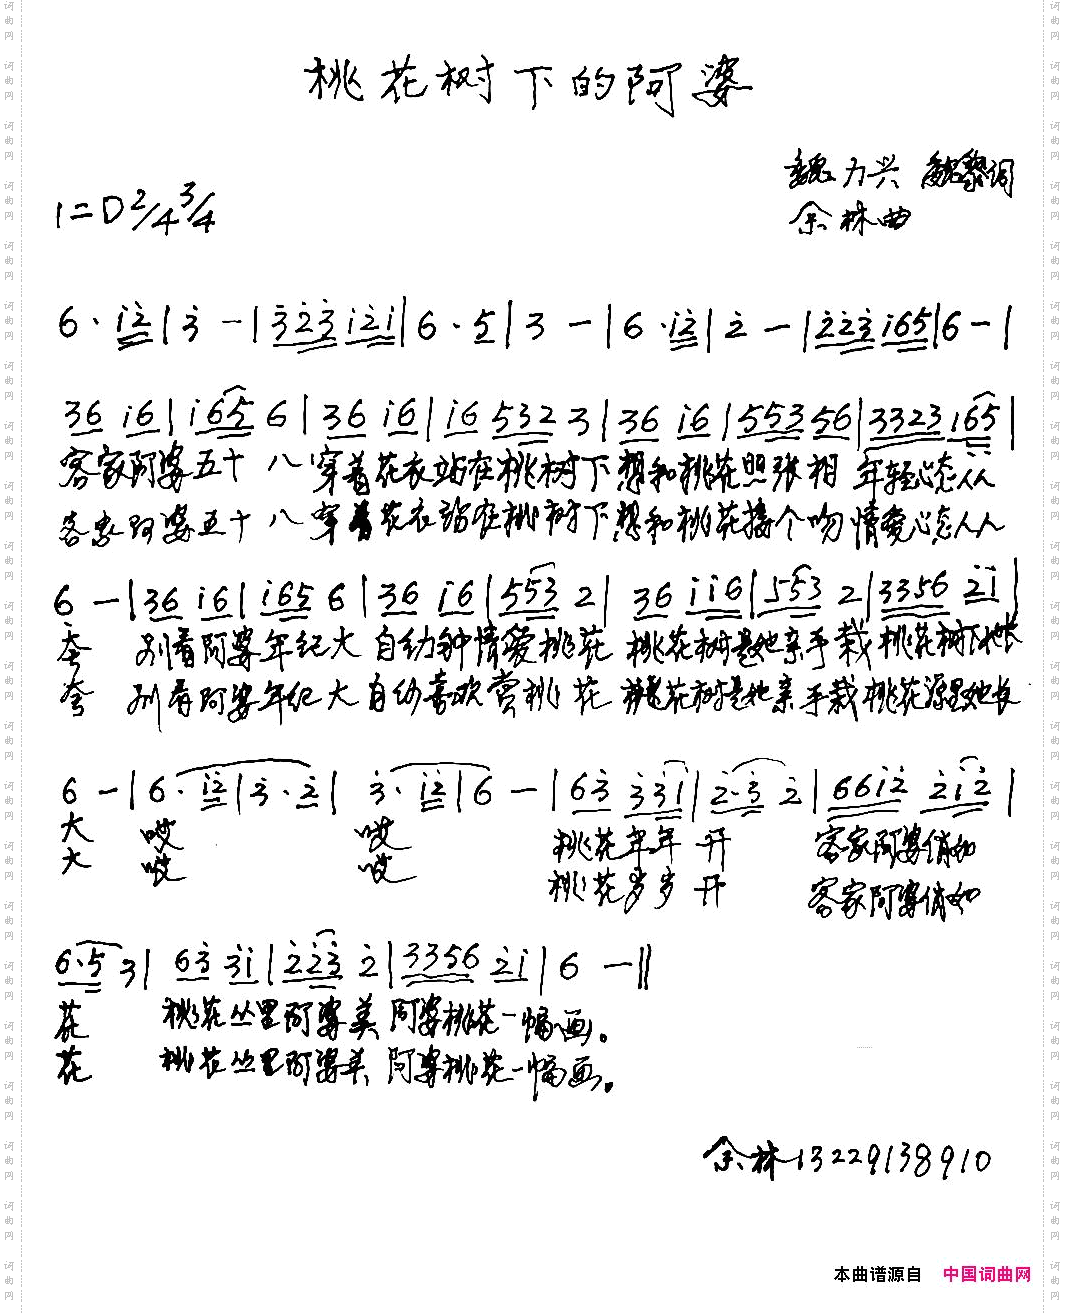 桃花树下的阿婆
魏力兴 魏黎词
1=D 2/4 3/4
余林曲
6·i̇2̇|3̇ -|3̇2̇3̇ i̇2̇i̇|6·5|3 -|6·i̇2̇|2̇ -|2̇2̇3̇ i̇65|6 -|
36 i̇6|i̇65 6|36 i̇6|i̇6 532 3|36 i̇6|553 56|3323 i̇65|
客家阿婆五十八 穿着花衣站在桃树下 想和桃花照张相 年轻心态人人
客家阿婆五十八 穿着花衣站在桃树下 想和桃花接个吻 情爱心态人人
6 -|36 i̇6|i̇65 6|36 i̇6|553 2|36 i̇i̇6|553 2|3356 2̇i̇|
夸 别看阿婆年纪大 自幼钟情爱桃花 桃花树是她亲手栽 桃花树下她长
夸 别看阿婆年纪大 自幼喜欢赏桃花 桃花树是她亲手栽 桃花源里她长
6 -|6·i̇2̇|3̇·2̇|3̇·i̇2̇|6 -|63̇ 3̇3̇i̇|2̇·3̇ 2̇|66i̇2̇ 2̇i̇2̇|
大 哎 哎 桃花年年开 客家阿婆俏如
大 哎 哎 桃花岁岁开 客家阿婆俏如
6·5 3|63̇ 3̇i̇|2̇2̇3̇ 2̇|3356 2̇i̇|6 -‖
花 桃花丛里阿婆美 阿婆桃花一幅画。
花 桃花丛里阿婆美 阿婆桃花一幅画。
余林13229138910
本曲谱源自 中国词曲网